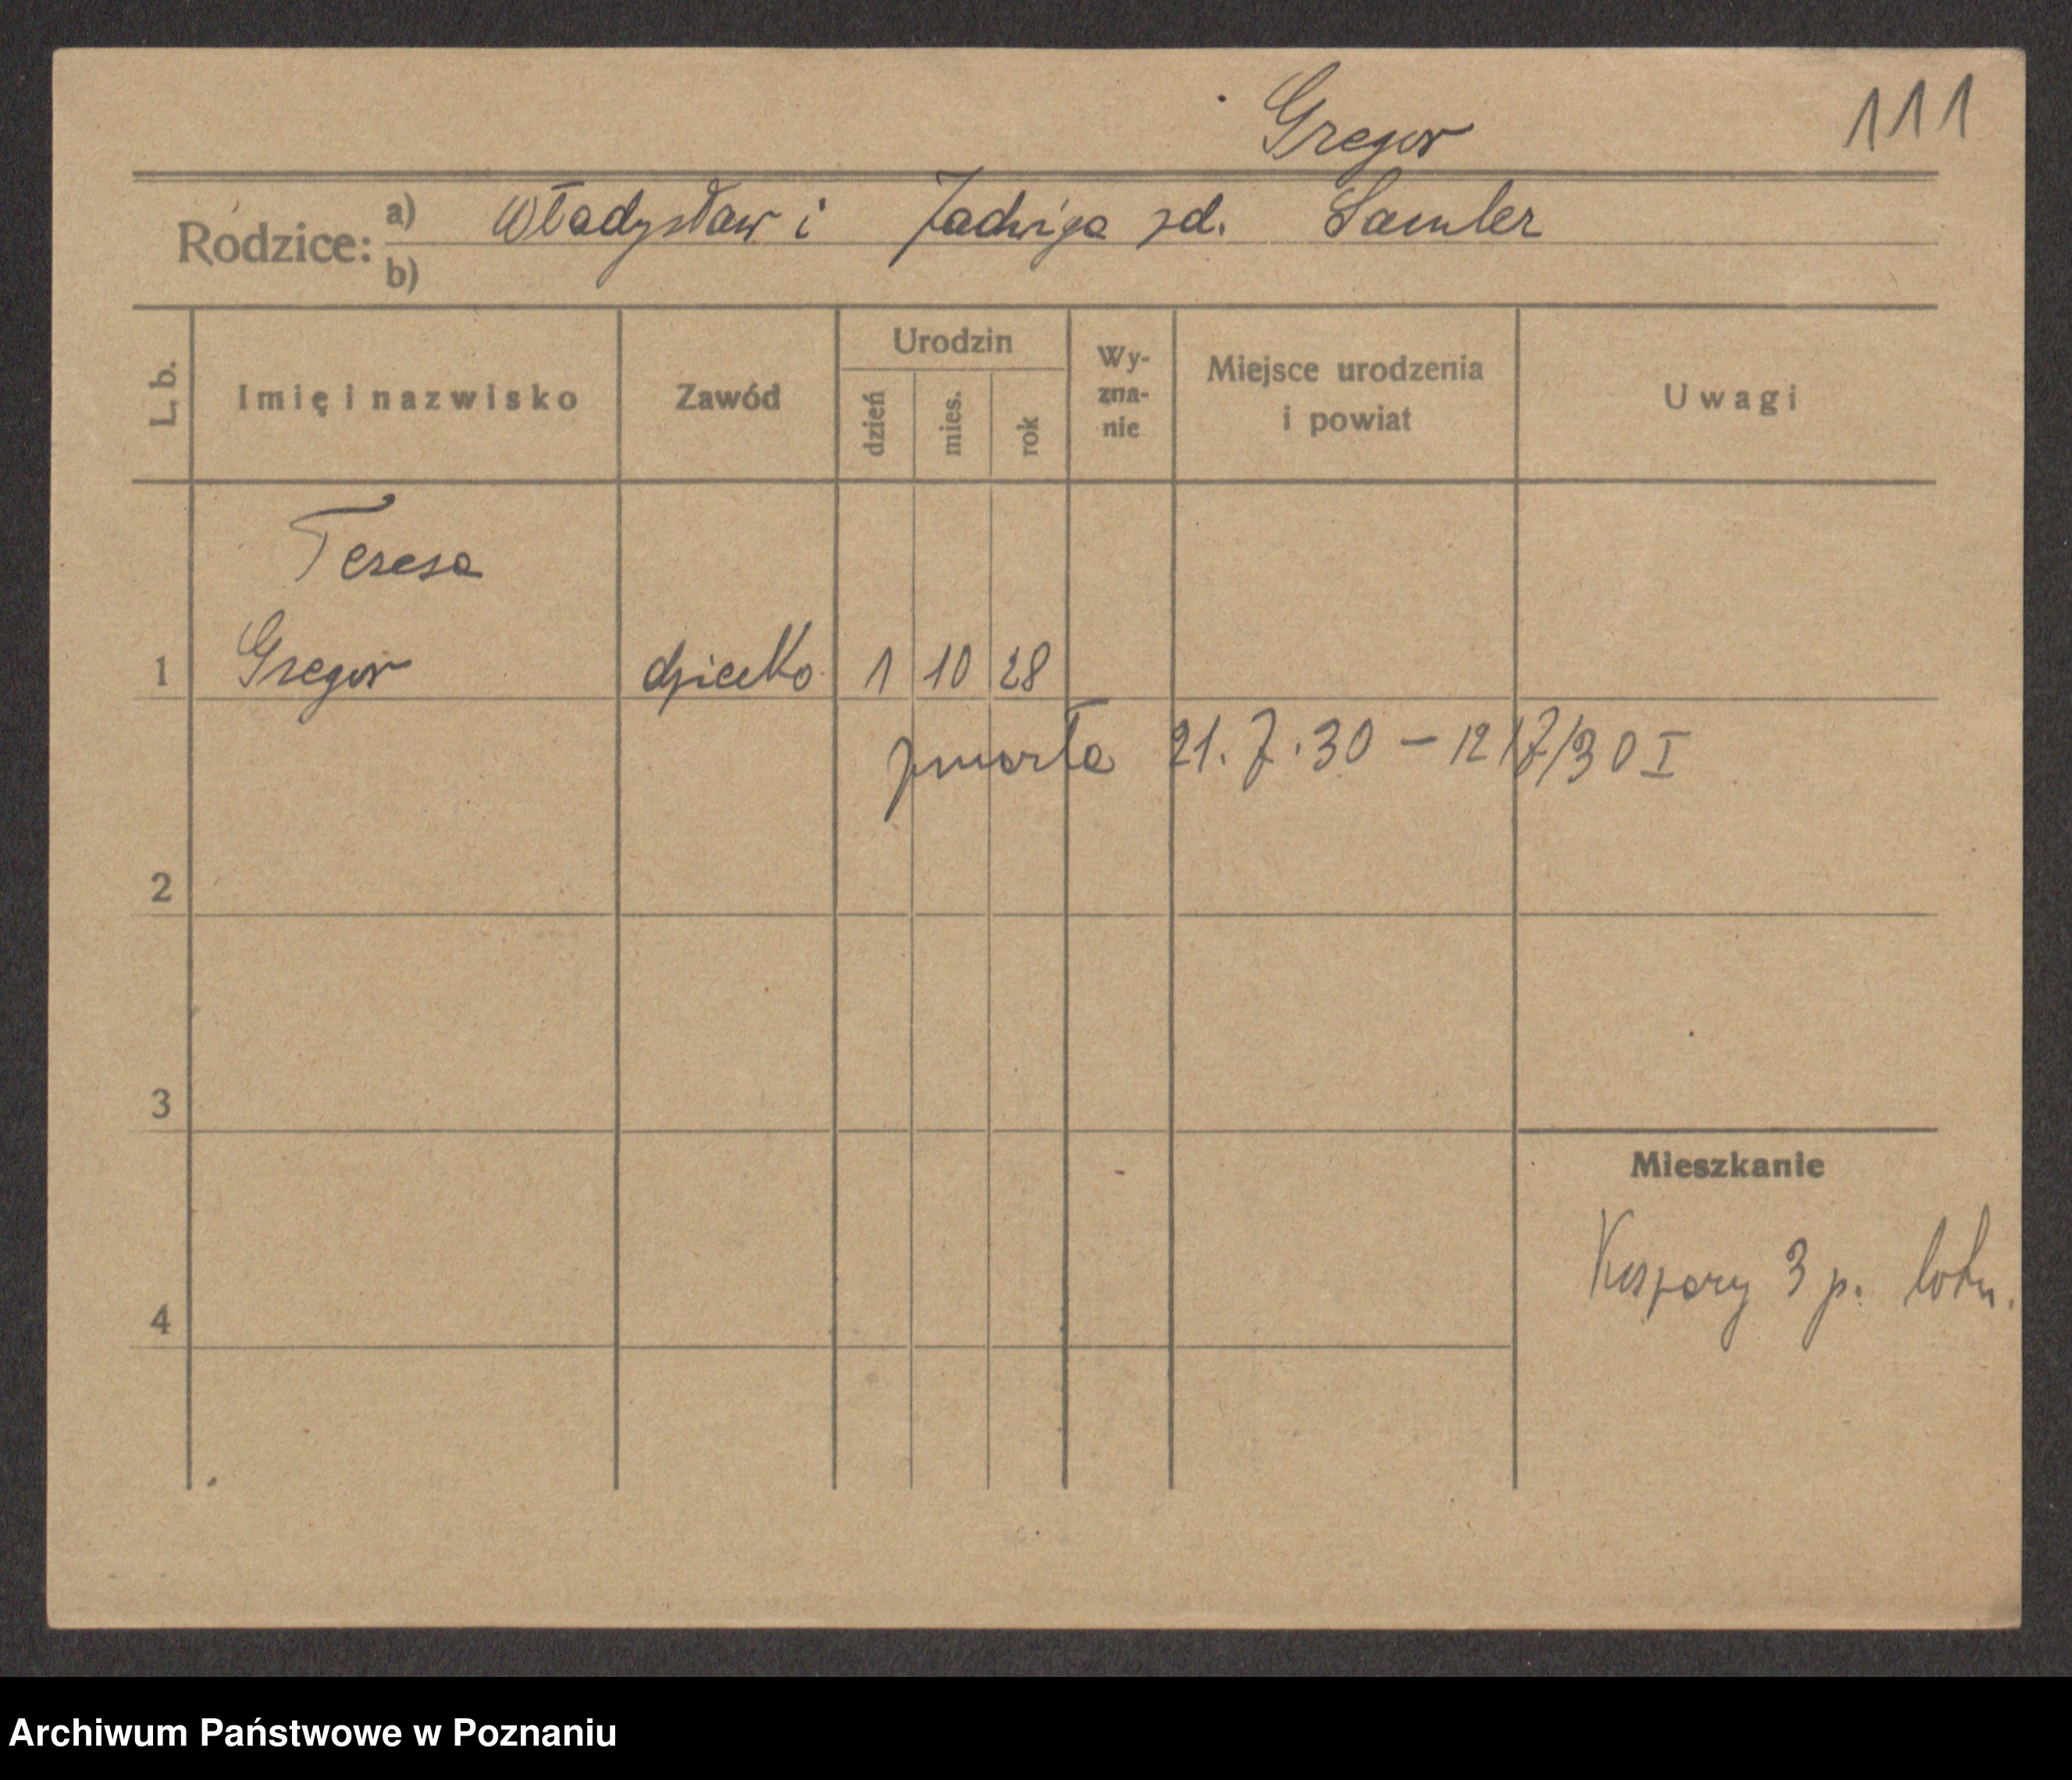 Gregor 111
Rodzice: a) Władysław i Jadwiga zd. Samler
b)
L. b. Imię i nazwisko Zawód Urodzin dzień mies. rok Wy-zna-nie Miejsce urodzenia i powiat Uwagi
Teresa
1 Gregor dziecko 1 10 28
zmarła 21.7.30 – 1217/30 I
2
3
Mieszkanie
3 p. lotn.
4
Archiwum Państwowe w Poznaniu